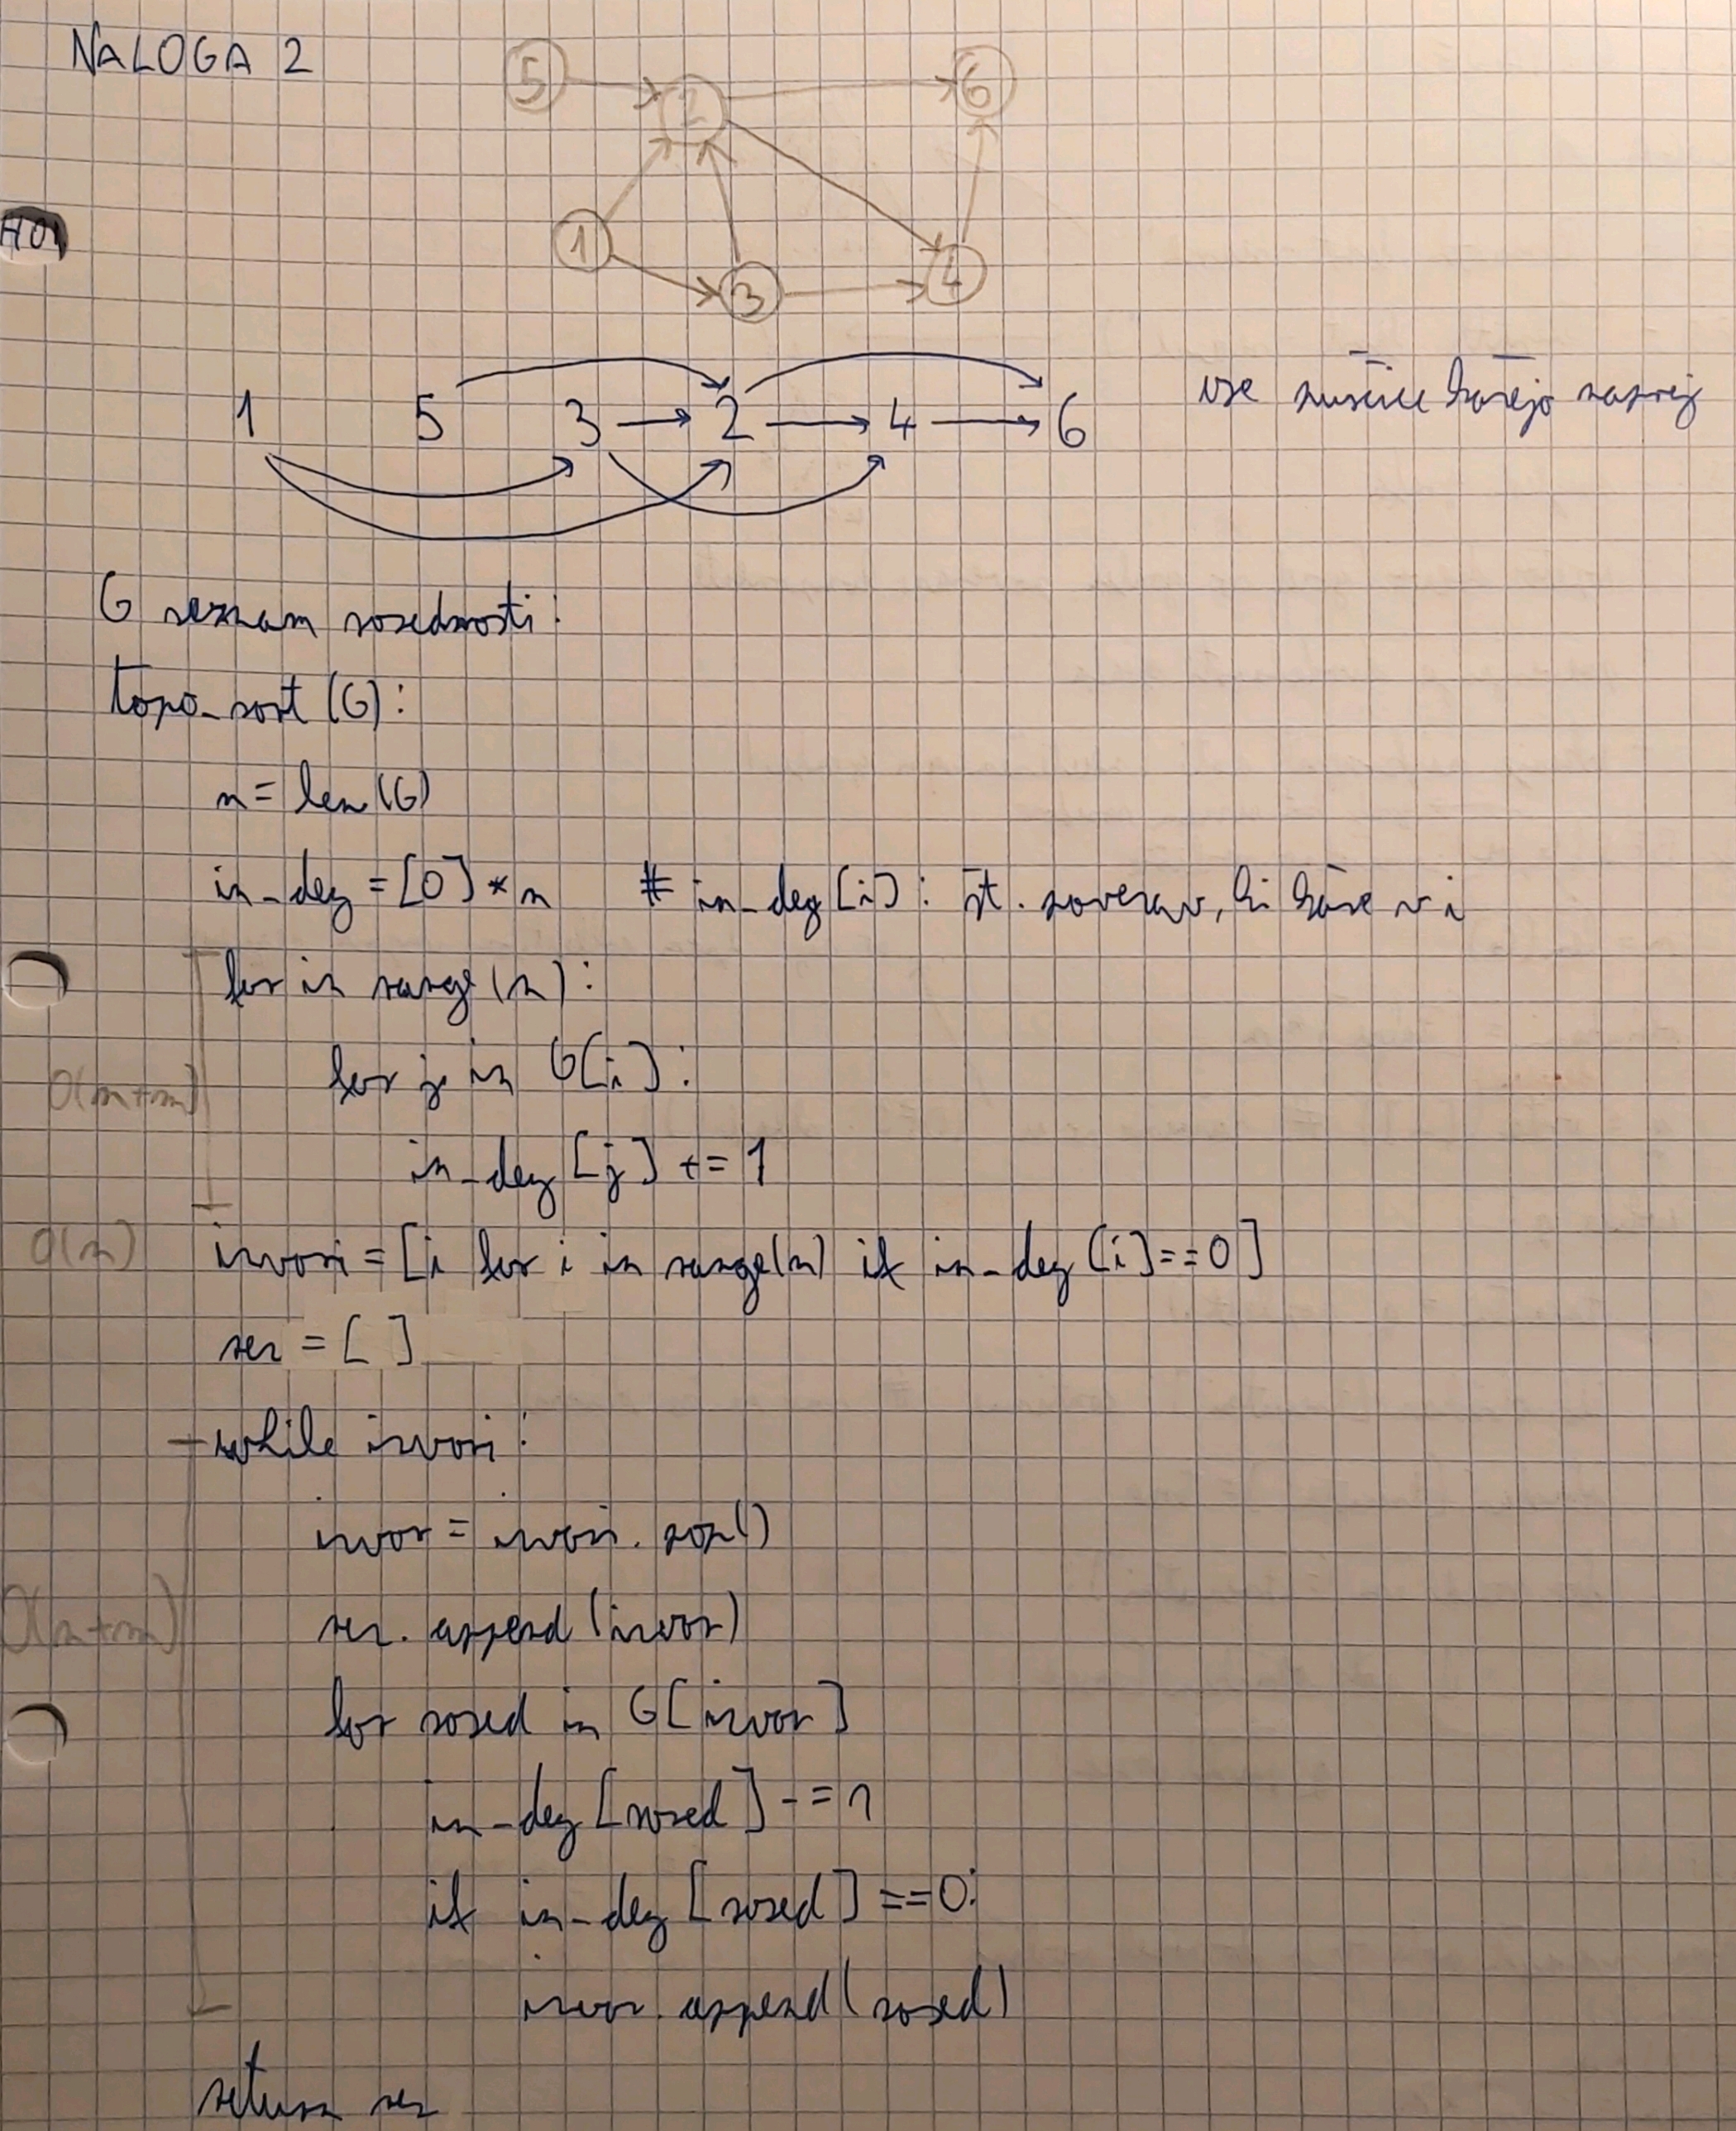 NALOGA 2
5 2 6
1 3 4
1 5 3 → 2 → 4 → 6 vse puščice kažejo naprej
G seznam sosednosti:
topo_sort (G):
n = len(G)
in_deg = [0] * n # in_deg[i]: št. povezav, ki kaže v i
for in range(n):
for j in G[i]:
O(n+m)
in_deg[j] += 1
O(n) izvori = [i for i in range(n) if in_deg[i]==0]
rez = [ ]
while izvori:
izvor = izvori.pop()
O(n+m) rez.append(izvor)
for sosed in G[izvor]
in_deg[sosed] -= 1
if in_deg[sosed] ==0:
izvor.append(sosed)
return rez